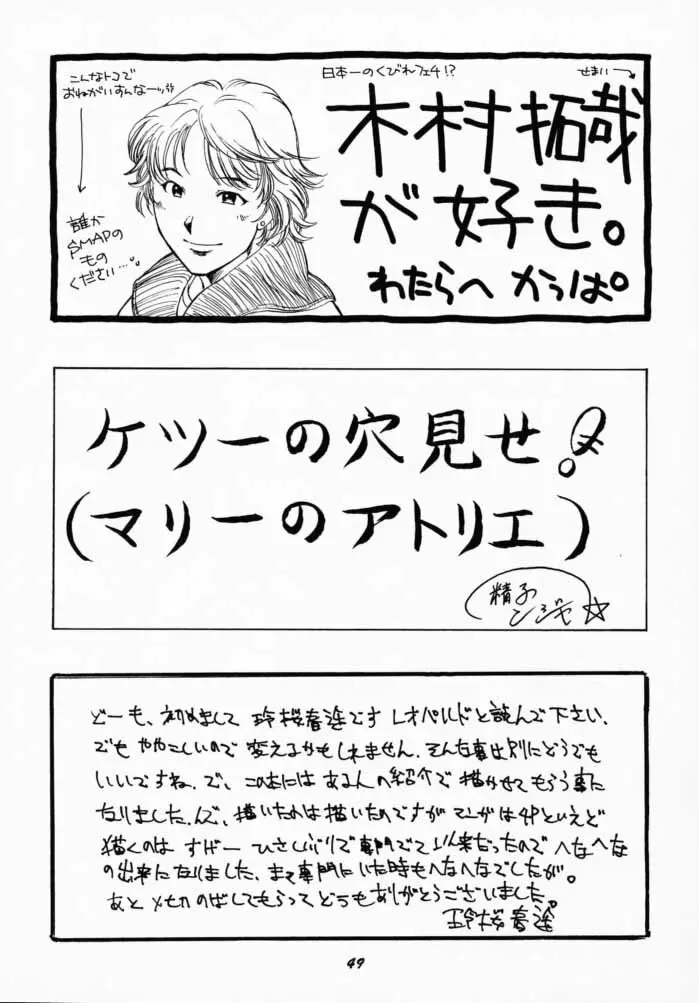 こんなトコで
おねがいすんなーッ!!
日本一のくびれフェチ!?
せまい→
木村拓哉
が好き。
わたらへ かっぱ。
誰か
SMAPの
もの
ください…
ケツーの穴見せ!
(マリーのアトリエ)
精子
ンジャ☆
どーも、初めまして 玲桜春途です レオパルドと読んで下さい.
でも ややこしいので 変えるかもしれません. そんな事は別にどうでも
いいですね. で、この本には ある人の紹介で 描かせてもらう事に
なりました. んで、描いたのは描いたのですが マンガは4Pといえど
描くのは すげー ひさしぶりで 専門でて以来だったので へなへな
の出来になりました. まぁ専門にいた時もへなへなでしたが。
あと 〆切のばしてもらって どうもありがとうございました。
玲桜春途
49